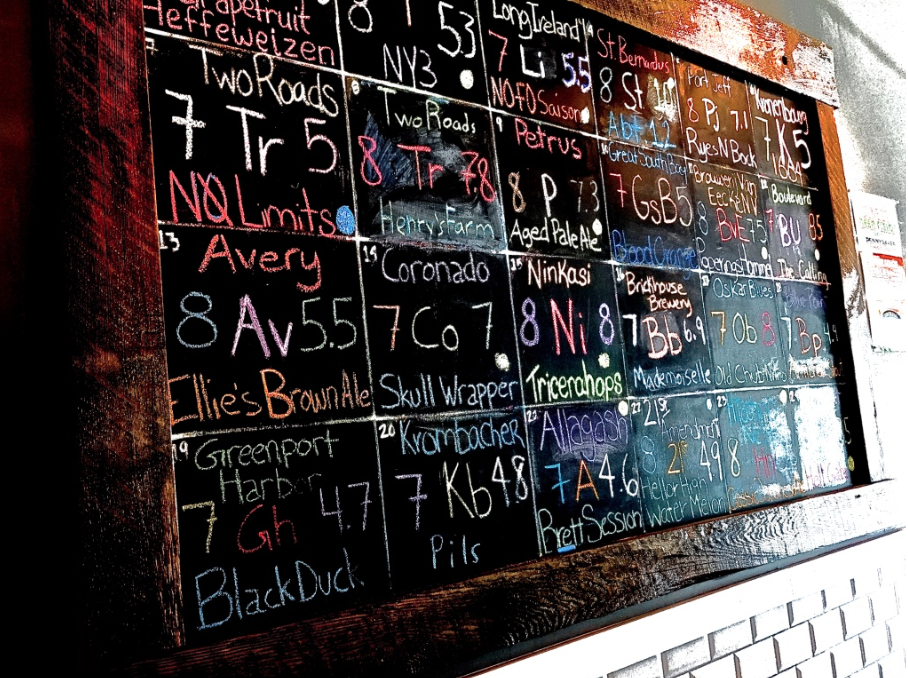 Grapefruit
Heffeweizen
8 53
NY3
Long Ireland
7 Li 55
NOFO Saison
St. Bernardus
8 St 10
Abt 12
Port Jeff
8 Pj 7.1
Ryes N Bock
7 K 5
7
Two Roads
7 Tr 5
NO Limits
8
Two Roads
8 Tr 7.8
Henry's Farm
9
Petrus
8 P 7.3
Aged Pale Ale
Great South Bay
7 GsB 5
Blood Orange
Brouwerij Van
Eecke NV
8 BvE 7.5
Boulevard
7 BU 8.5
The Calling
13
Avery
8 Av 5.5
Ellie's Brown Ale
14
Coronado
7 Co 7
Skull Wrapper
15
Ninkasi
8 Ni 8
Tricerahops
16
Brickhouse
Brewery
7 Bb 6.9
Mademoiselle
Oskar Blues
7 Ob 3
Old Chub Nitro
7 Bp
19
Greenport
Harbor
7 Gh 4.7
Black Duck
20
Krombacher
7 Kb 4.8
Pils
21
Allagash
7 A 4.6
Brett Session
22
21st
Amendment
8 21 49
Hell or High
Water Melon
23
8